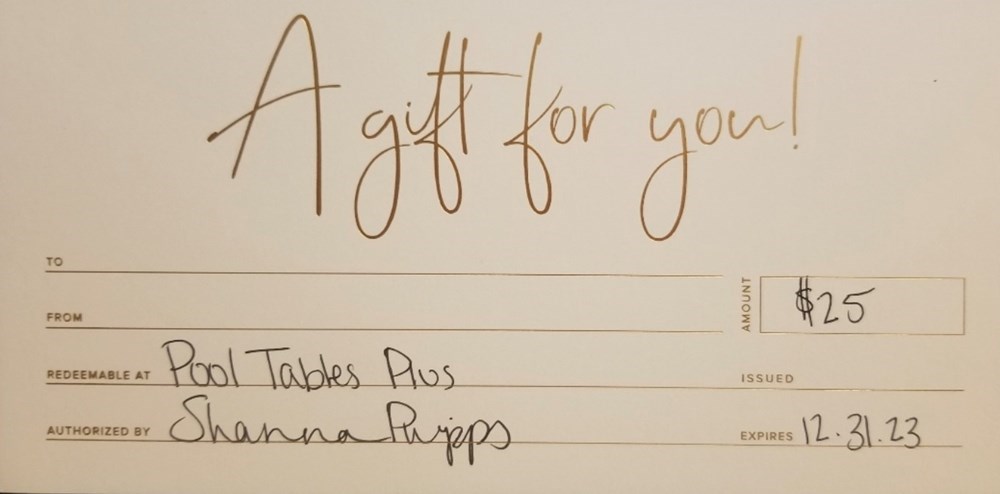 A gift for you!
TO
FROM
AMOUNT $25
REDEEMABLE AT Pool Tables Plus
ISSUED
AUTHORIZED BY Shanna Phipps
EXPIRES 12.31.23